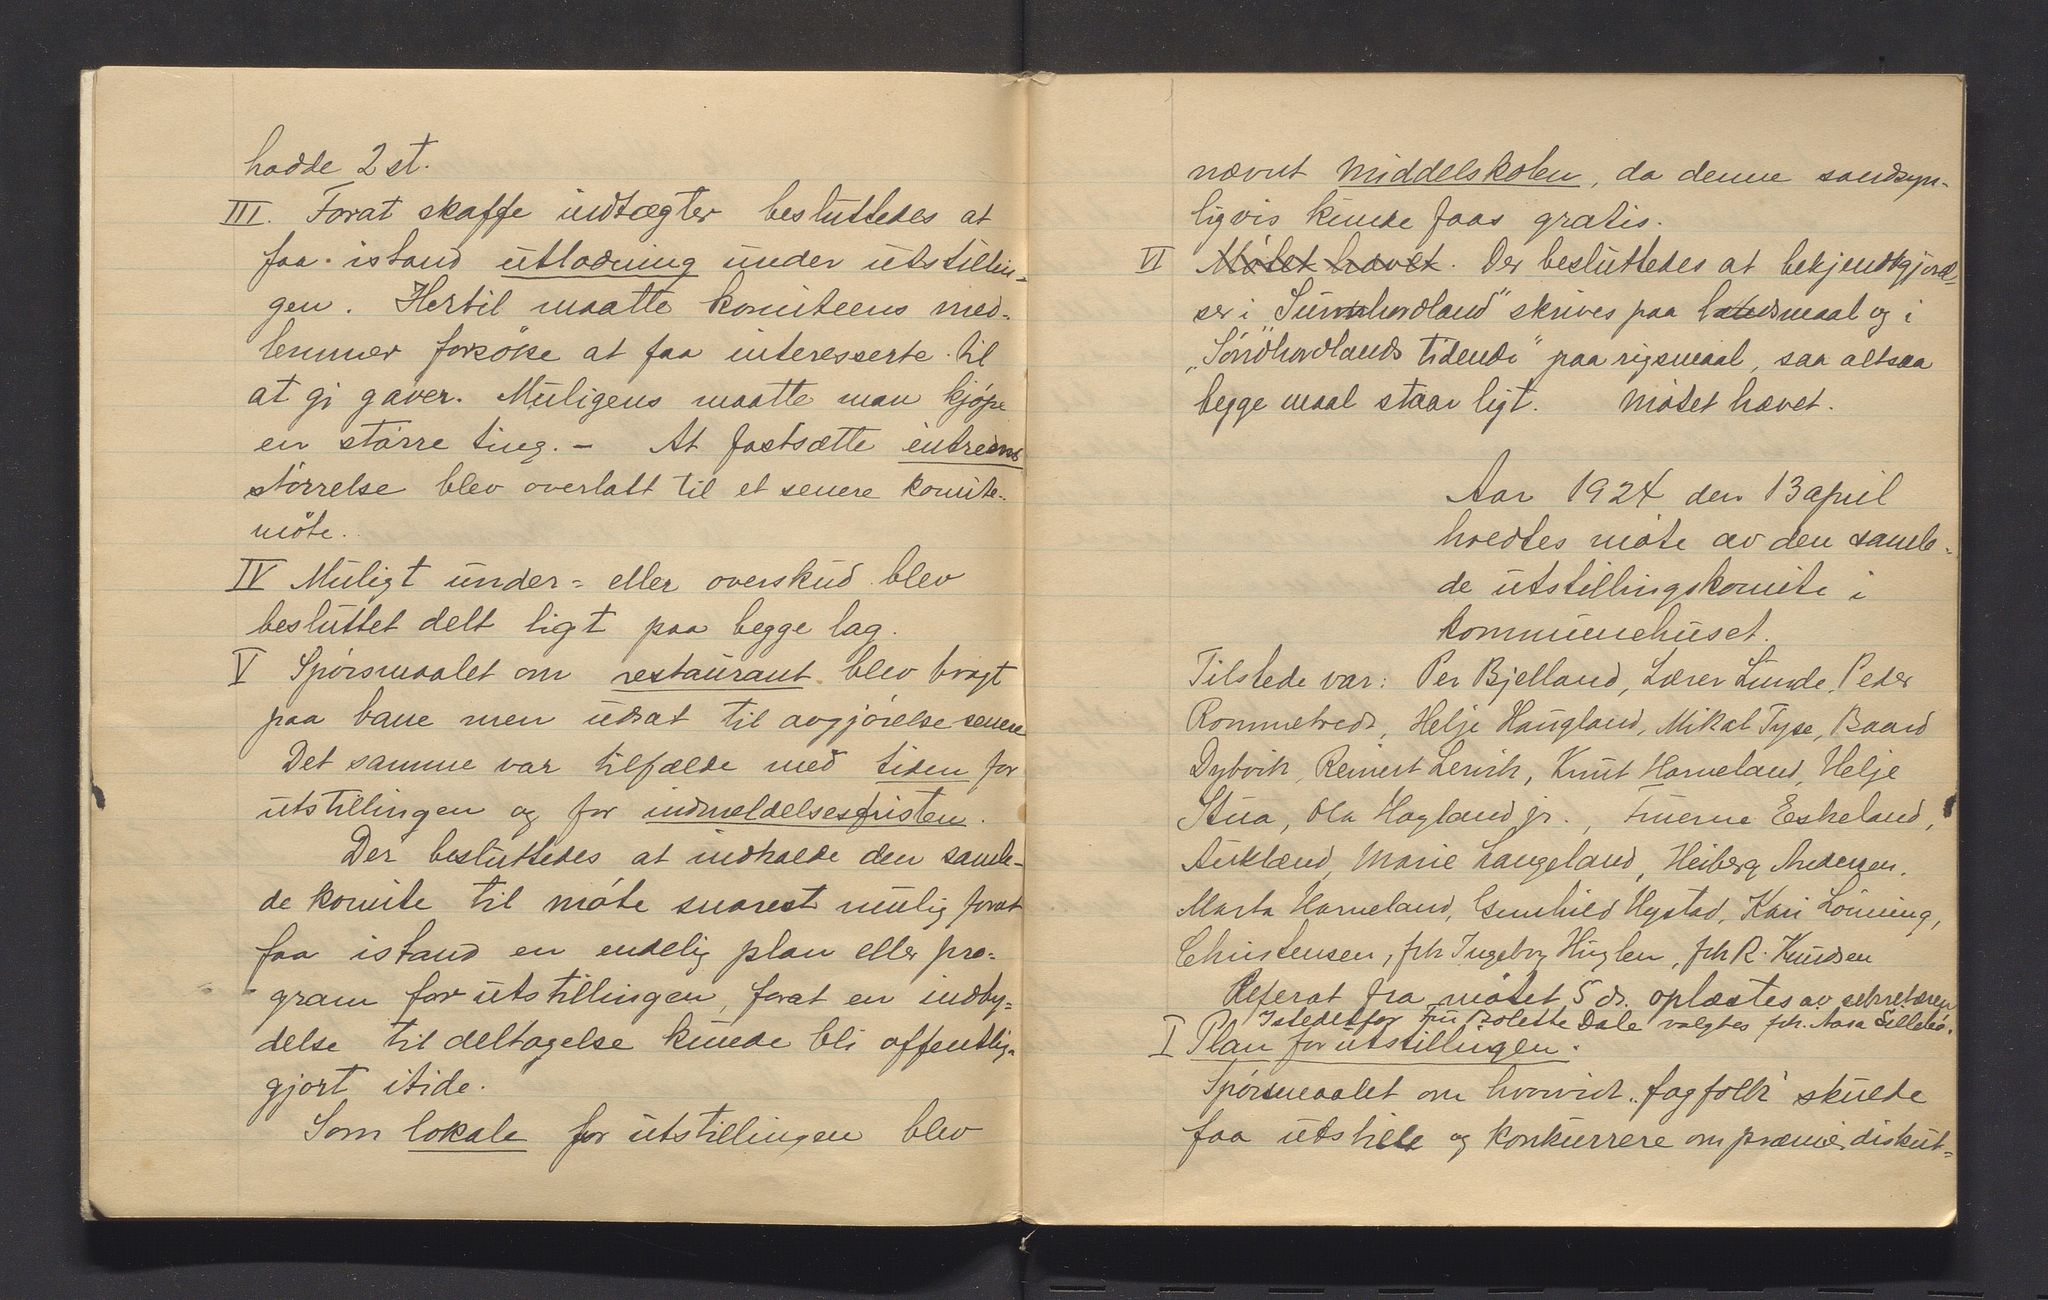 hadde 2 st.
III. Forat skaffe indtægter besluttedes at
faa istand utlodning under utstillin-
gen. Hertil maatte komiteens med-
lemmer forsöke at faa interesserte til
at gi gaver. Muligens maatte man kjöpe
en större ting. – At fastsætte entreens
störrelse blev overlatt til et senere komite-
möte.
IV Muligt under- eller overskud blev
besluttet delt ligt paa begge lag.
V Spörsmaalet om restaurant blev bragt
paa bane men utsat til avgjörelse senere
Det samme var tilfælde med tiden for
utstillingen og for indmeldelsesfristen.
Der besluttedes at indkalde den samle-
de komite til möte snarest mulig forat
faa istand en endelig plan eller pro-
gram for utstillingen, forat en indby-
delse til deltagelse kunde bli offentlig-
gjort itide.
Som lokale for utstillingen blev
nævnt Middelskolen, da denne sandsyn-
ligvis kunde faas gratis.
VI Mötet hævet. Der besluttedes at bekjendtgjörel-
ser i "Sunnhordland" skrives paa landsmaal og i
"Söndhordlands tidende" paa rigsmaal, saa altsaa
begge maal staar ligt. Mötet hævet.
Aar 1924 den 13 april
holdtes möte av den samle-
de utstillingskomite i
kommunehuset.
Tilstede var: Per Bjelland, Lærer Lunde, Peder
Rommetvedt, Helje Haugland, Mikal Tyse, Baard
Dybvik, Reinert Lervik, Knut Horneland, Helje
Stua, Ola Hogland jr., Fruerne Eskeland,
Aukland, Marie Langeland, Heiberg Andersen,
Marta Horneland, Gunhild Hystad, Kari Lönning,
Christensen, frk Ingeborg Huglen, frk R. Knudsen
Referat fra mötet 5 ds. oplæstes av sekretæren
Istedetfor Fru Bolette Dale valgtes frk. Aasa Lillebö.
I Plan for utstillingen.
Spörsmaalet om hvorvidt "fagfolk" skulde
faa utstille og konkurrere om præmie, diskut-